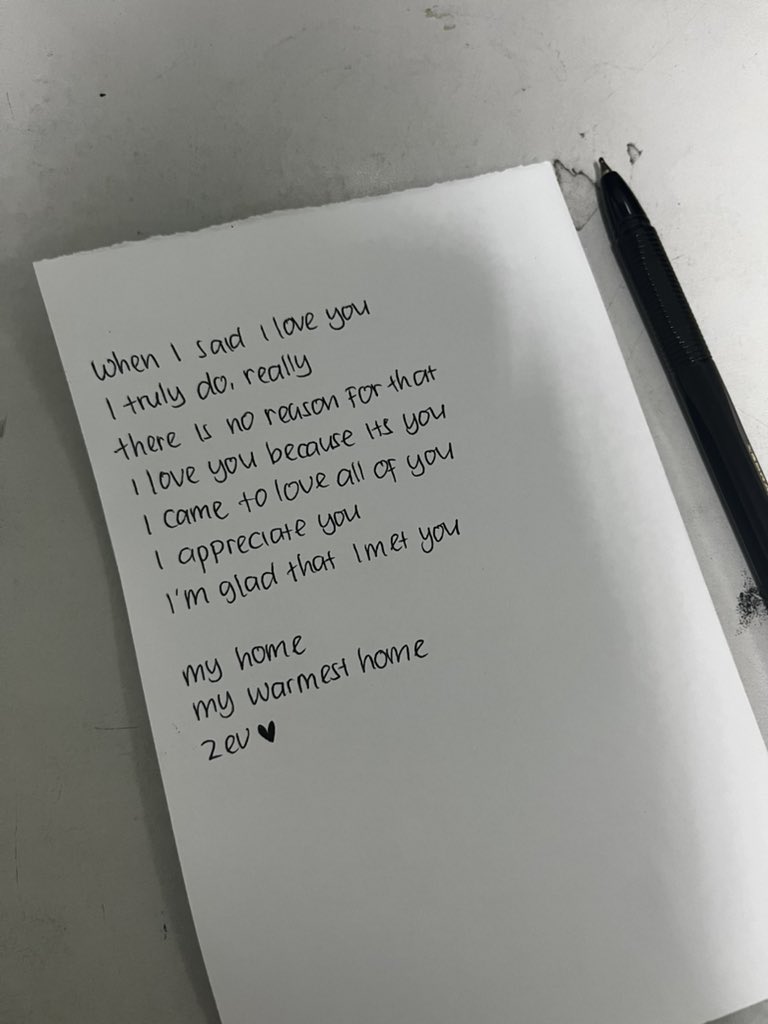 When I said I love you
I truly do, really
there is no reason for that
I love you because its you
I came to love all of you
I appreciate you
I'm glad that I met you
my home
my warmest home
zev ♥